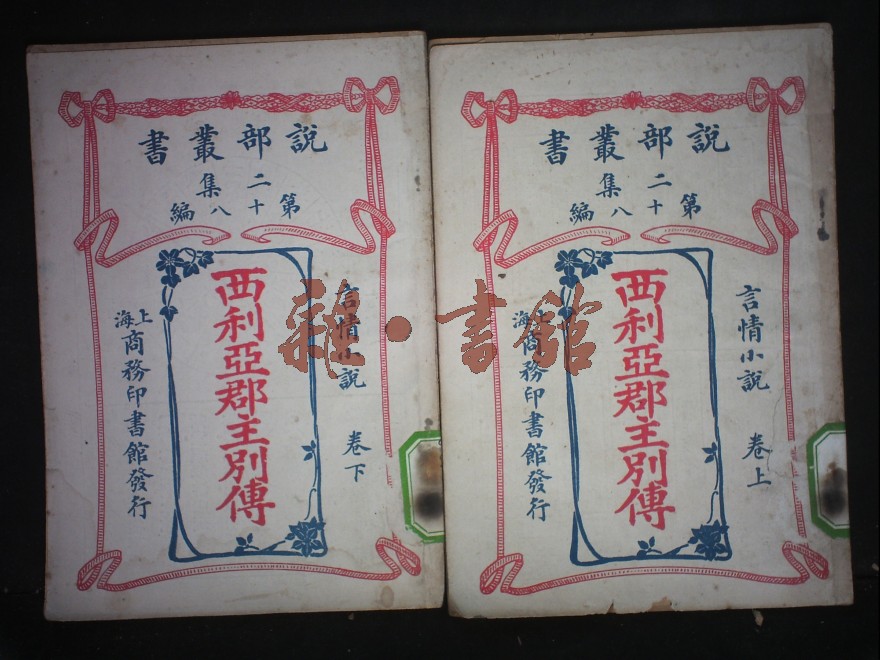 說部叢書
二集
第十八編
言情小說 卷上
西利亞郡主別傳
上海商務印書館發行
說部叢書
二集
第十八編
言情小說 卷下
西利亞郡主別傳
上海商務印書館發行
雜·書館